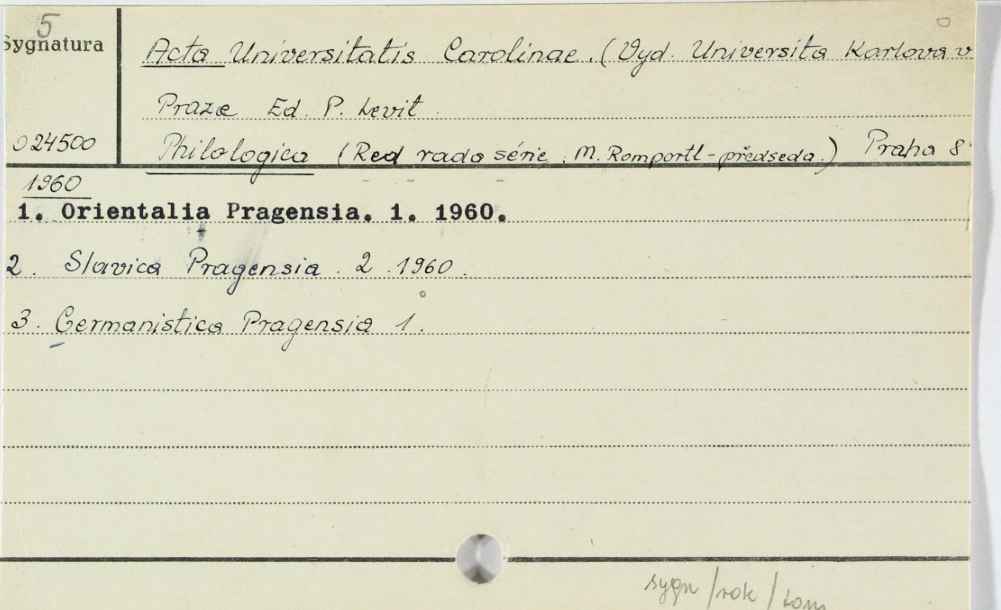 5
Sygnatura
Acta Universitatis Carolinae. (Vyd. Universita Karlova v
Praze Ed. P. Levit.
024500
Philologica (Red rada série, M. Romportl - předseda.) Praha 8°
1960
1. Orientalia Pragensia. 1. 1960.
2. Slavica Pragensia. 2. 1960.
3. Germanistica Pragensia 1.
sygn/rok/tom